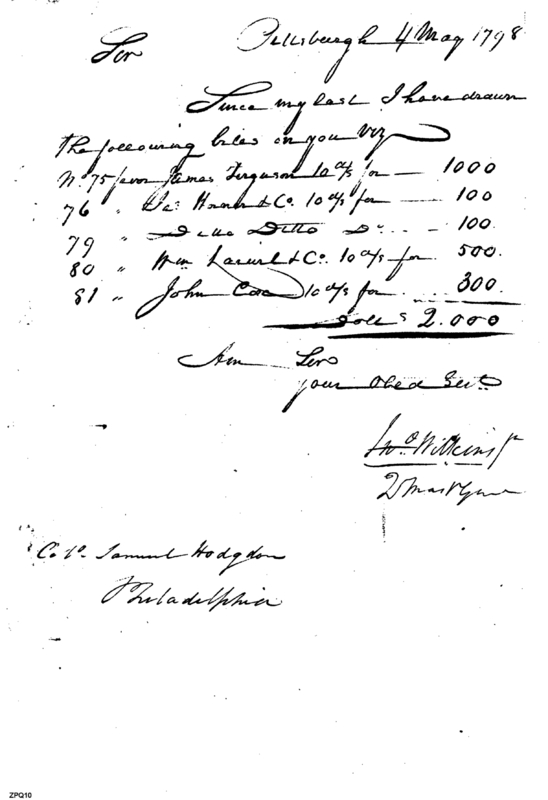 Pittsburgh 4 May 1798
Sir
Since my last I have drawn
the following bills on you Viz
No. 75 favor James Ferguson 10 d/s for — 1000
76 " Do. & Co. 10 d/s for — 100
79 " Ditto Ditto Do. — 100.
80 " Wm & Co. 10 d/s for 500.
81 " John Cox 10 d/s for 300.
Dolls 2.000
Am Sir
your Obed Sert
Jno Wilkins Jr
Q Mast Genl
Colo. Samuel Hodgdon
Philadelphia
ZPQ10